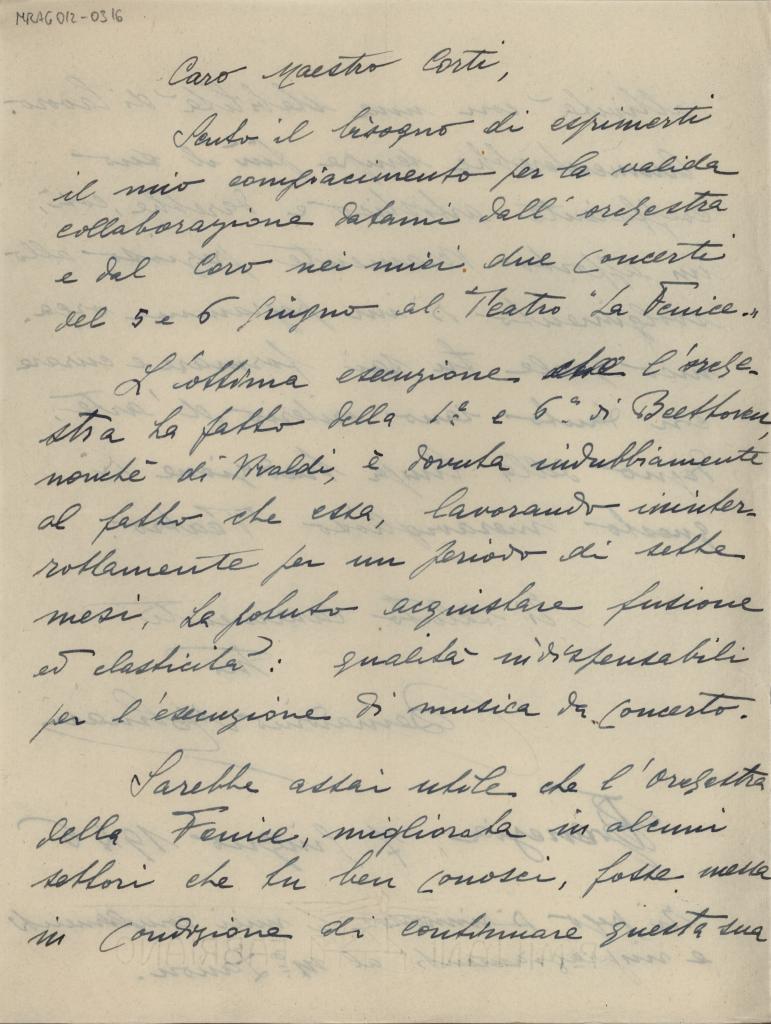 MRAG 012-0316
Caro Maestro Corti,
Sento il bisogno di esprimerti
il mio compiacimento per la valida
collaborazione datami dall'orchestra
e dal Coro nei miei due Concerti
del 5 e 6 giugno al Teatro "La Fenice."
L'ottima esecuzione che l'orche-
stra ha fatto della 1ª e 6ª di Beethoven,
nonchè di Vivaldi, è dovuta indubbiamente
al fatto che essa, lavorando ininter-
rottamente per un periodo di sette
mesi, ha potuto acquistare fusione
ed elasticità: qualità indispensabili
per l'esecuzione di musica da Concerto.
Sarebbe assai utile che l'Orchestra
della Fenice, migliorata in alcuni
settori che tu ben conosci, fosse messa
in Condizione di continuare questa sua